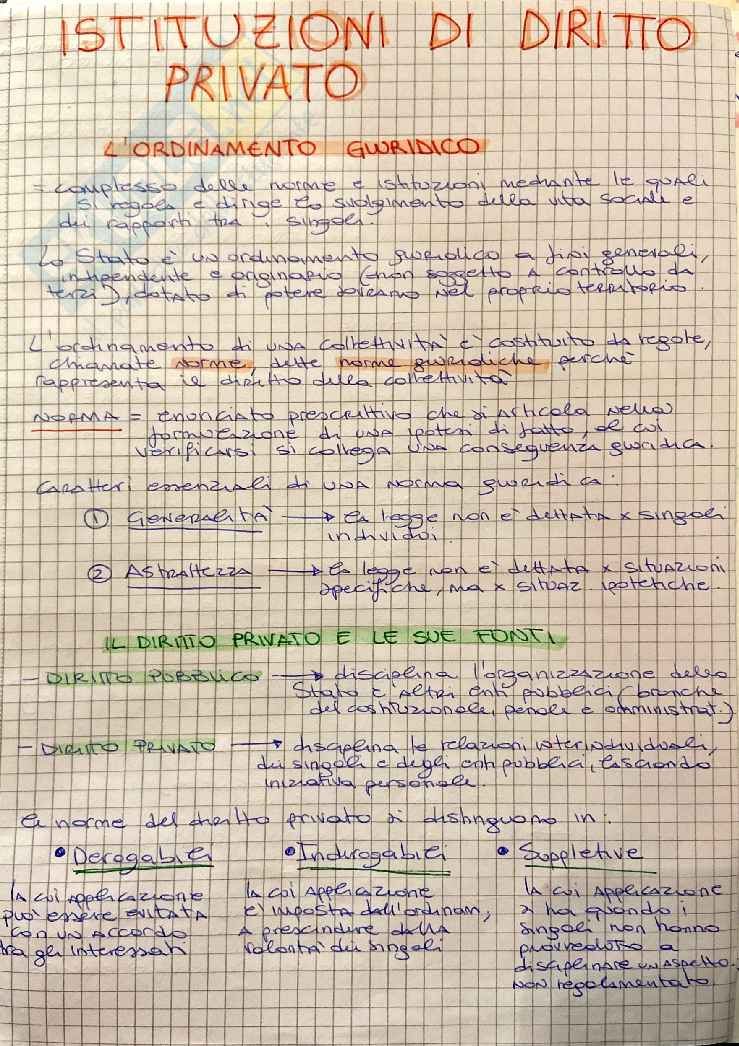 ISTITUZIONI DI DIRITTO
PRIVATO
L'ORDINAMENTO GIURIDICO
= complesso delle norme e istituzioni mediante le quali
si regola e dirige lo svolgimento della vita sociale e
dei rapporti tra i singoli.
Lo Stato è un ordinamento giuridico a fini generali,
indipendente e originario (non soggetto a controllo da
terzi), dotato di potere sovrano nel proprio territorio.
L'ordinamento di una collettività è costituito da regole,
chiamate norme, dette norme giuridiche, perché
rappresenta il diritto della collettività
NORMA = enunciato prescrittivo che si articola nella
formulazione di una ipotesi di fatto, al cui
verificarsi si collega una conseguenza giuridica.
Caratteri essenziali di una norma giuridica:
① GENERALITÀ → la legge non è dettata x singoli
individui.
② ASTRATTEZZA → la legge non è dettata x situazioni
specifiche, ma x situaz. ipotetiche.
IL DIRITTO PRIVATO E LE SUE FONTI
- DIRITTO PUBBLICO → disciplina l'organizzazione dello
Stato e altri enti pubblici (branche
del costituzionale, penale e amministrat.)
- DIRITTO PRIVATO → disciplina le relazioni interindividuali,
dei singoli e degli enti pubblici, lasciando
iniziativa personale.
Le norme del diritto privato si distinguono in:
• Derogabili • Inderogabili • Suppletive
la cui applicazione
può essere evitata
con un accordo
tra gli interessati
la cui applicazione
è imposta dall'ordinam,
a prescindere dalla
volontà dei singoli
la cui applicazione
si ha quando i
singoli non hanno
provveduto a
disciplinare un aspetto
non regolamentato.